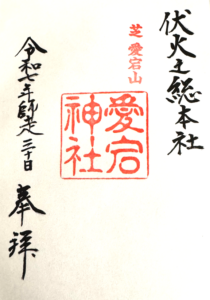 伏火之総本社
芝 愛宕山
愛宕神社
奉拝
令和七年師走三十日